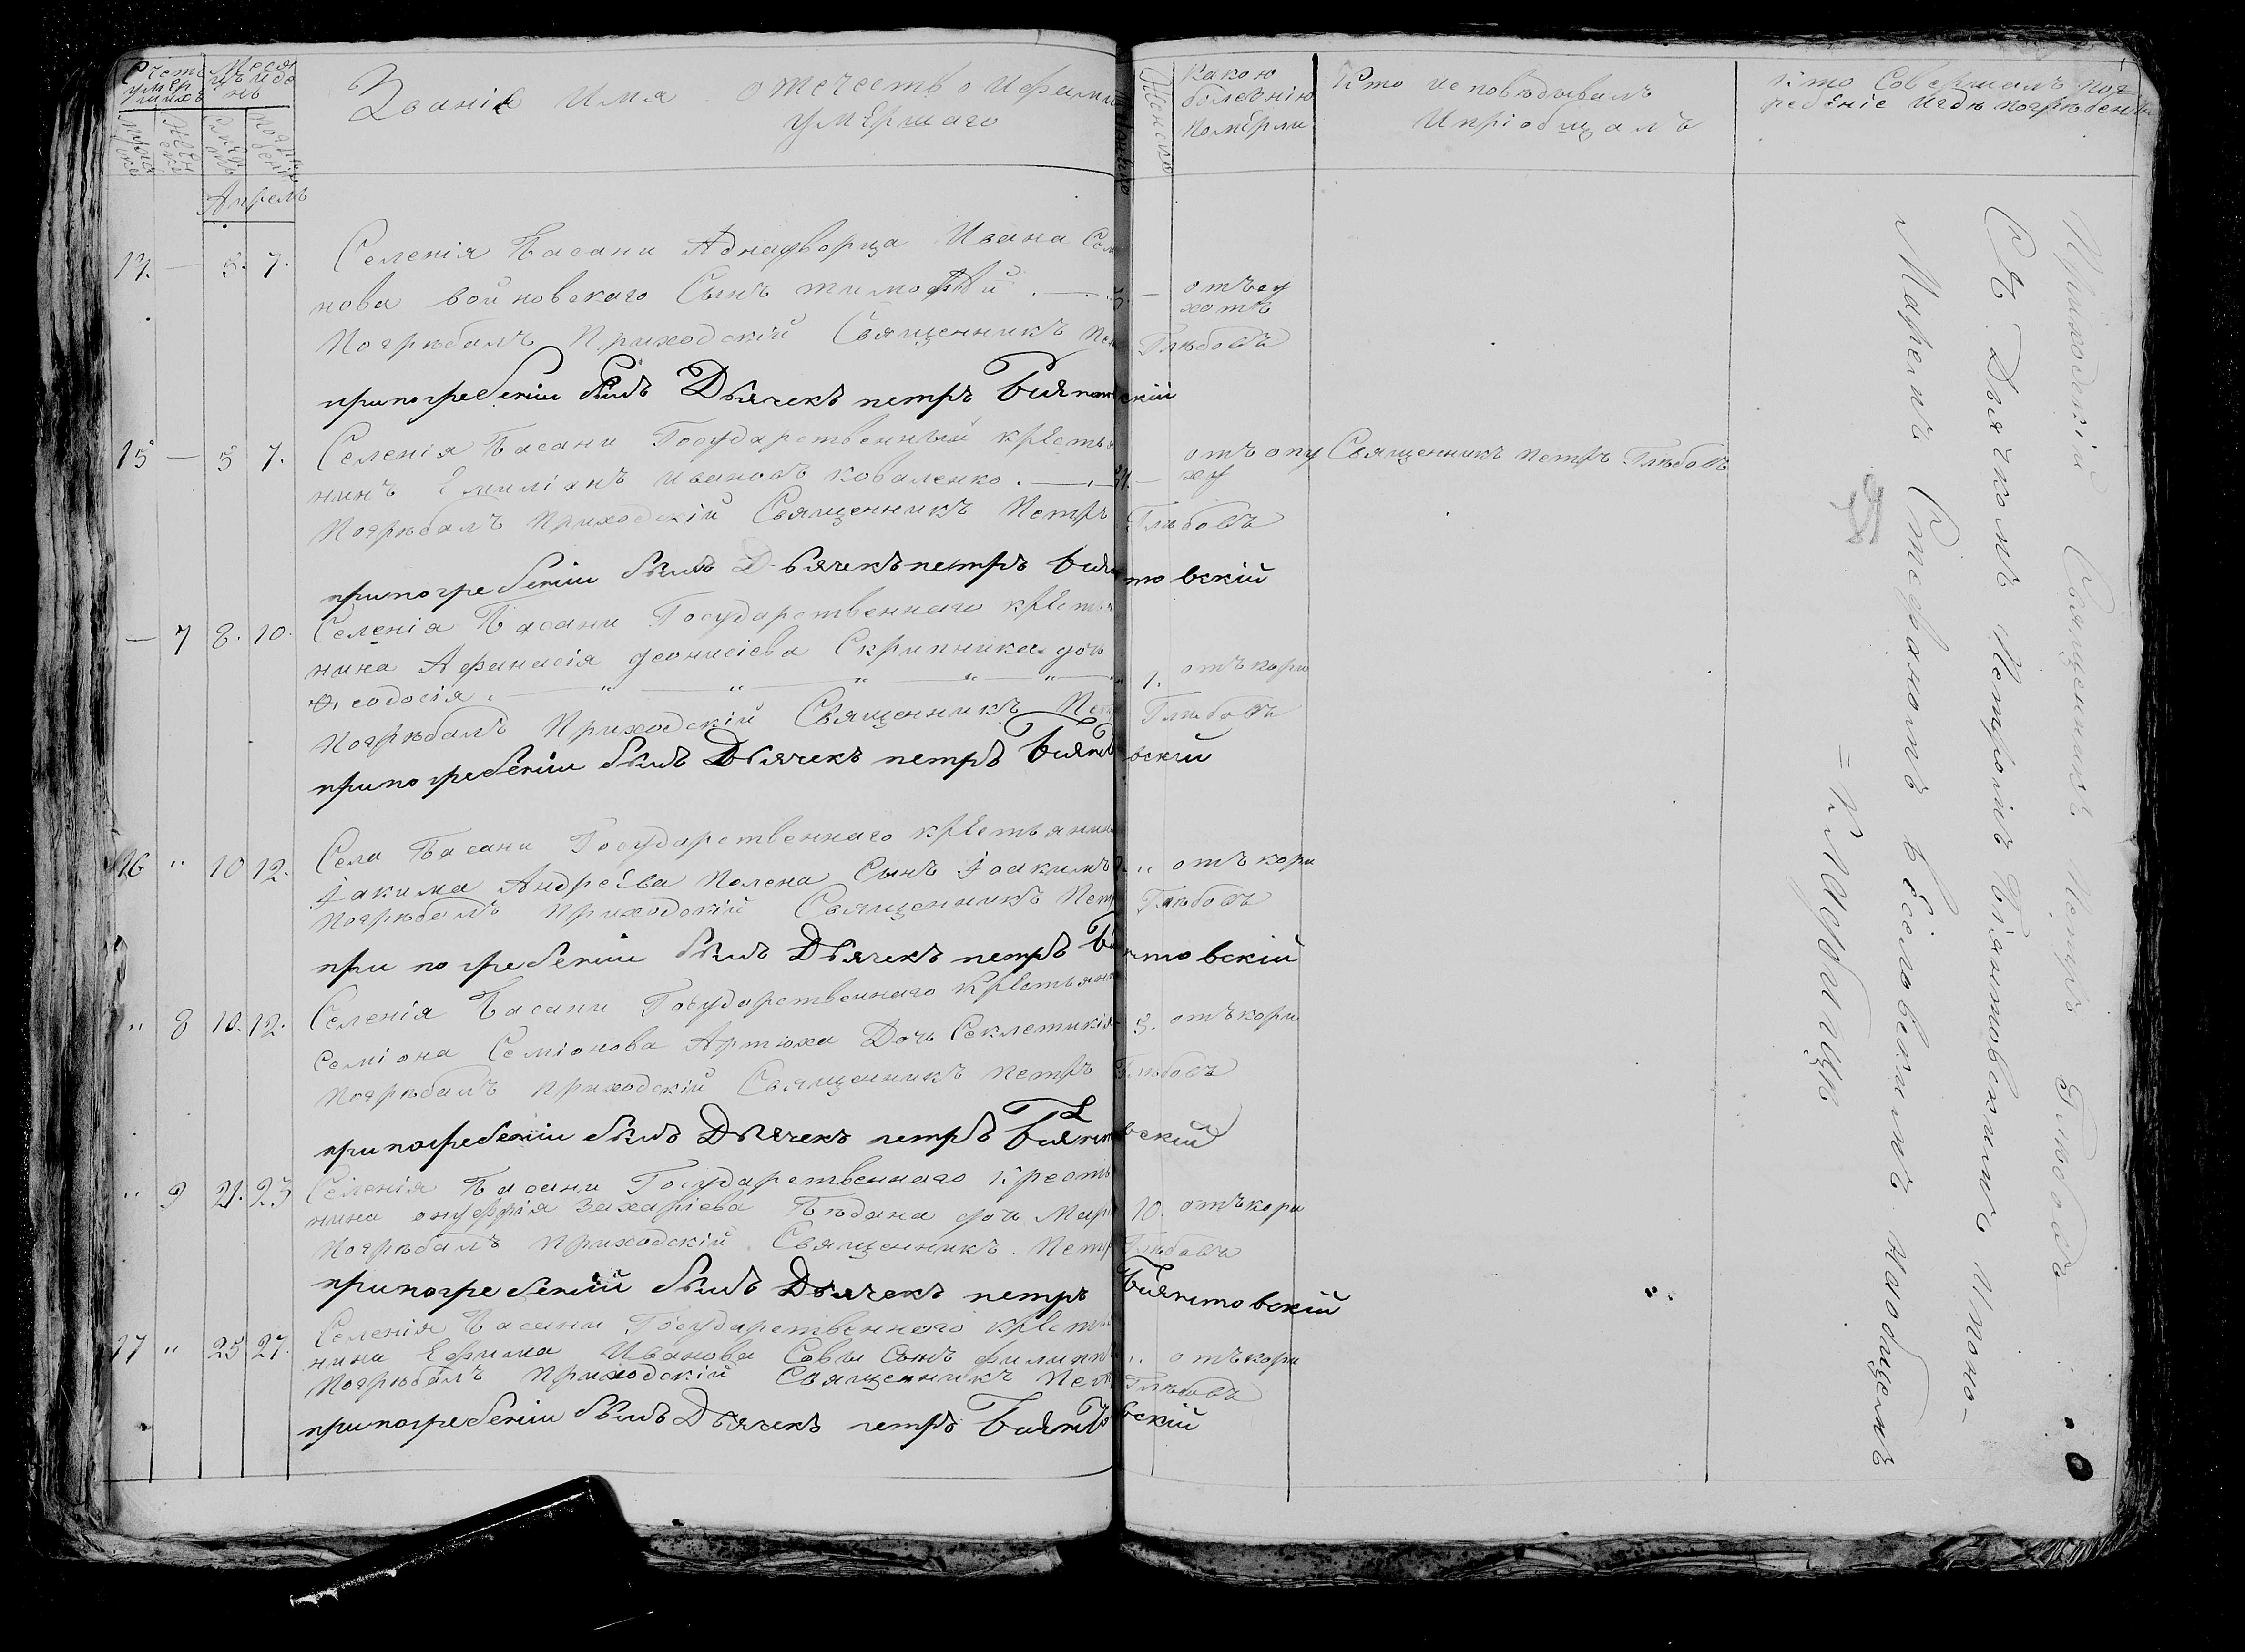 Счетъ умершихъ
Месяцъ и день
Званіе Имя отечество и фамилія умершаго
Женско
какою болезнію померли
Кто исповѣдывалъ и пріобщалъ
кто Совершалъ погребеніе и гдѣ погребены
Апрель
5. 7. Селенія Басани Аднадворца Ивана Семе
нова войновскаго Сынъ тимофѣй — отъ сухотъ
Погрѣбалъ Приходскій Священникъ Петръ Глѣбовъ
при погребеніи былъ Дьячекъ петръ Біянтовскій
15 — 5 7. Селенія Басани Государственный крестья
нинъ Емиліянъ Ивановъ коваленко . — отъ опуху Священникъ Петръ Глѣбовъ
Погрѣбалъ Приходскій Священникъ Петръ Глѣбовъ
при погребеніи былъ Дьячекъ петръ Біянтовскій
— 7 8. 10. Селенія Басани Государственнаго крестья
нина Афанасія деонисіева Скрипника дочь
Ѳеодосія 1. отъ кори
Погрѣбалъ Приходскій Священникъ Петръ Глѣбовъ
при погребеніи былъ Дьячекъ петръ Біянтовскій
16 " 10 12. Села Басани Государственнаго крестьянина
Іакима Андреева Полена Сынъ Іоакимъ " отъ кори
Погрѣбалъ Приходскій Священникъ Петръ Глѣбовъ
при погребеніи былъ Дьячекъ петръ Біянтовскій
" 8 10. 12. Селенія Басани Государственнаго Крестьянина
Семіона Семіонова Артюха Дочь Секлетикія 3. отъ кори
Погрѣбалъ приходскій Священникъ Петръ Глѣбовъ
при погребеніи былъ Дьячекъ петръ Біянтовскій
" 9 21. 23 Селенія Басани Государственнаго Кресть
нина онуфрія Захаріева Бѣдана дочь Мар 10. отъ кори
Погрѣбалъ приходскій Священникъ Петръ Глѣбовъ
при погребеніи былъ Дьячекъ петръ Біянтовскій
17 " 25 27. Селенія Басани Государственнаго кресть
нина Ефима Иванова Совы Сынъ филиппъ " отъ кори
Погрѣбалъ Приходскій Священникъ Петръ Глѣбовъ
при погребеніи былъ Дьячекъ петръ Біянтовскій
Приходскій Священникъ Петръ Глѣбовъ
Съ Дьячкомъ Петромъ Біянтовскимъ и поно-
Маремъ Стефаномъ Василовскимъ на общемъ
= Кладбищѣ